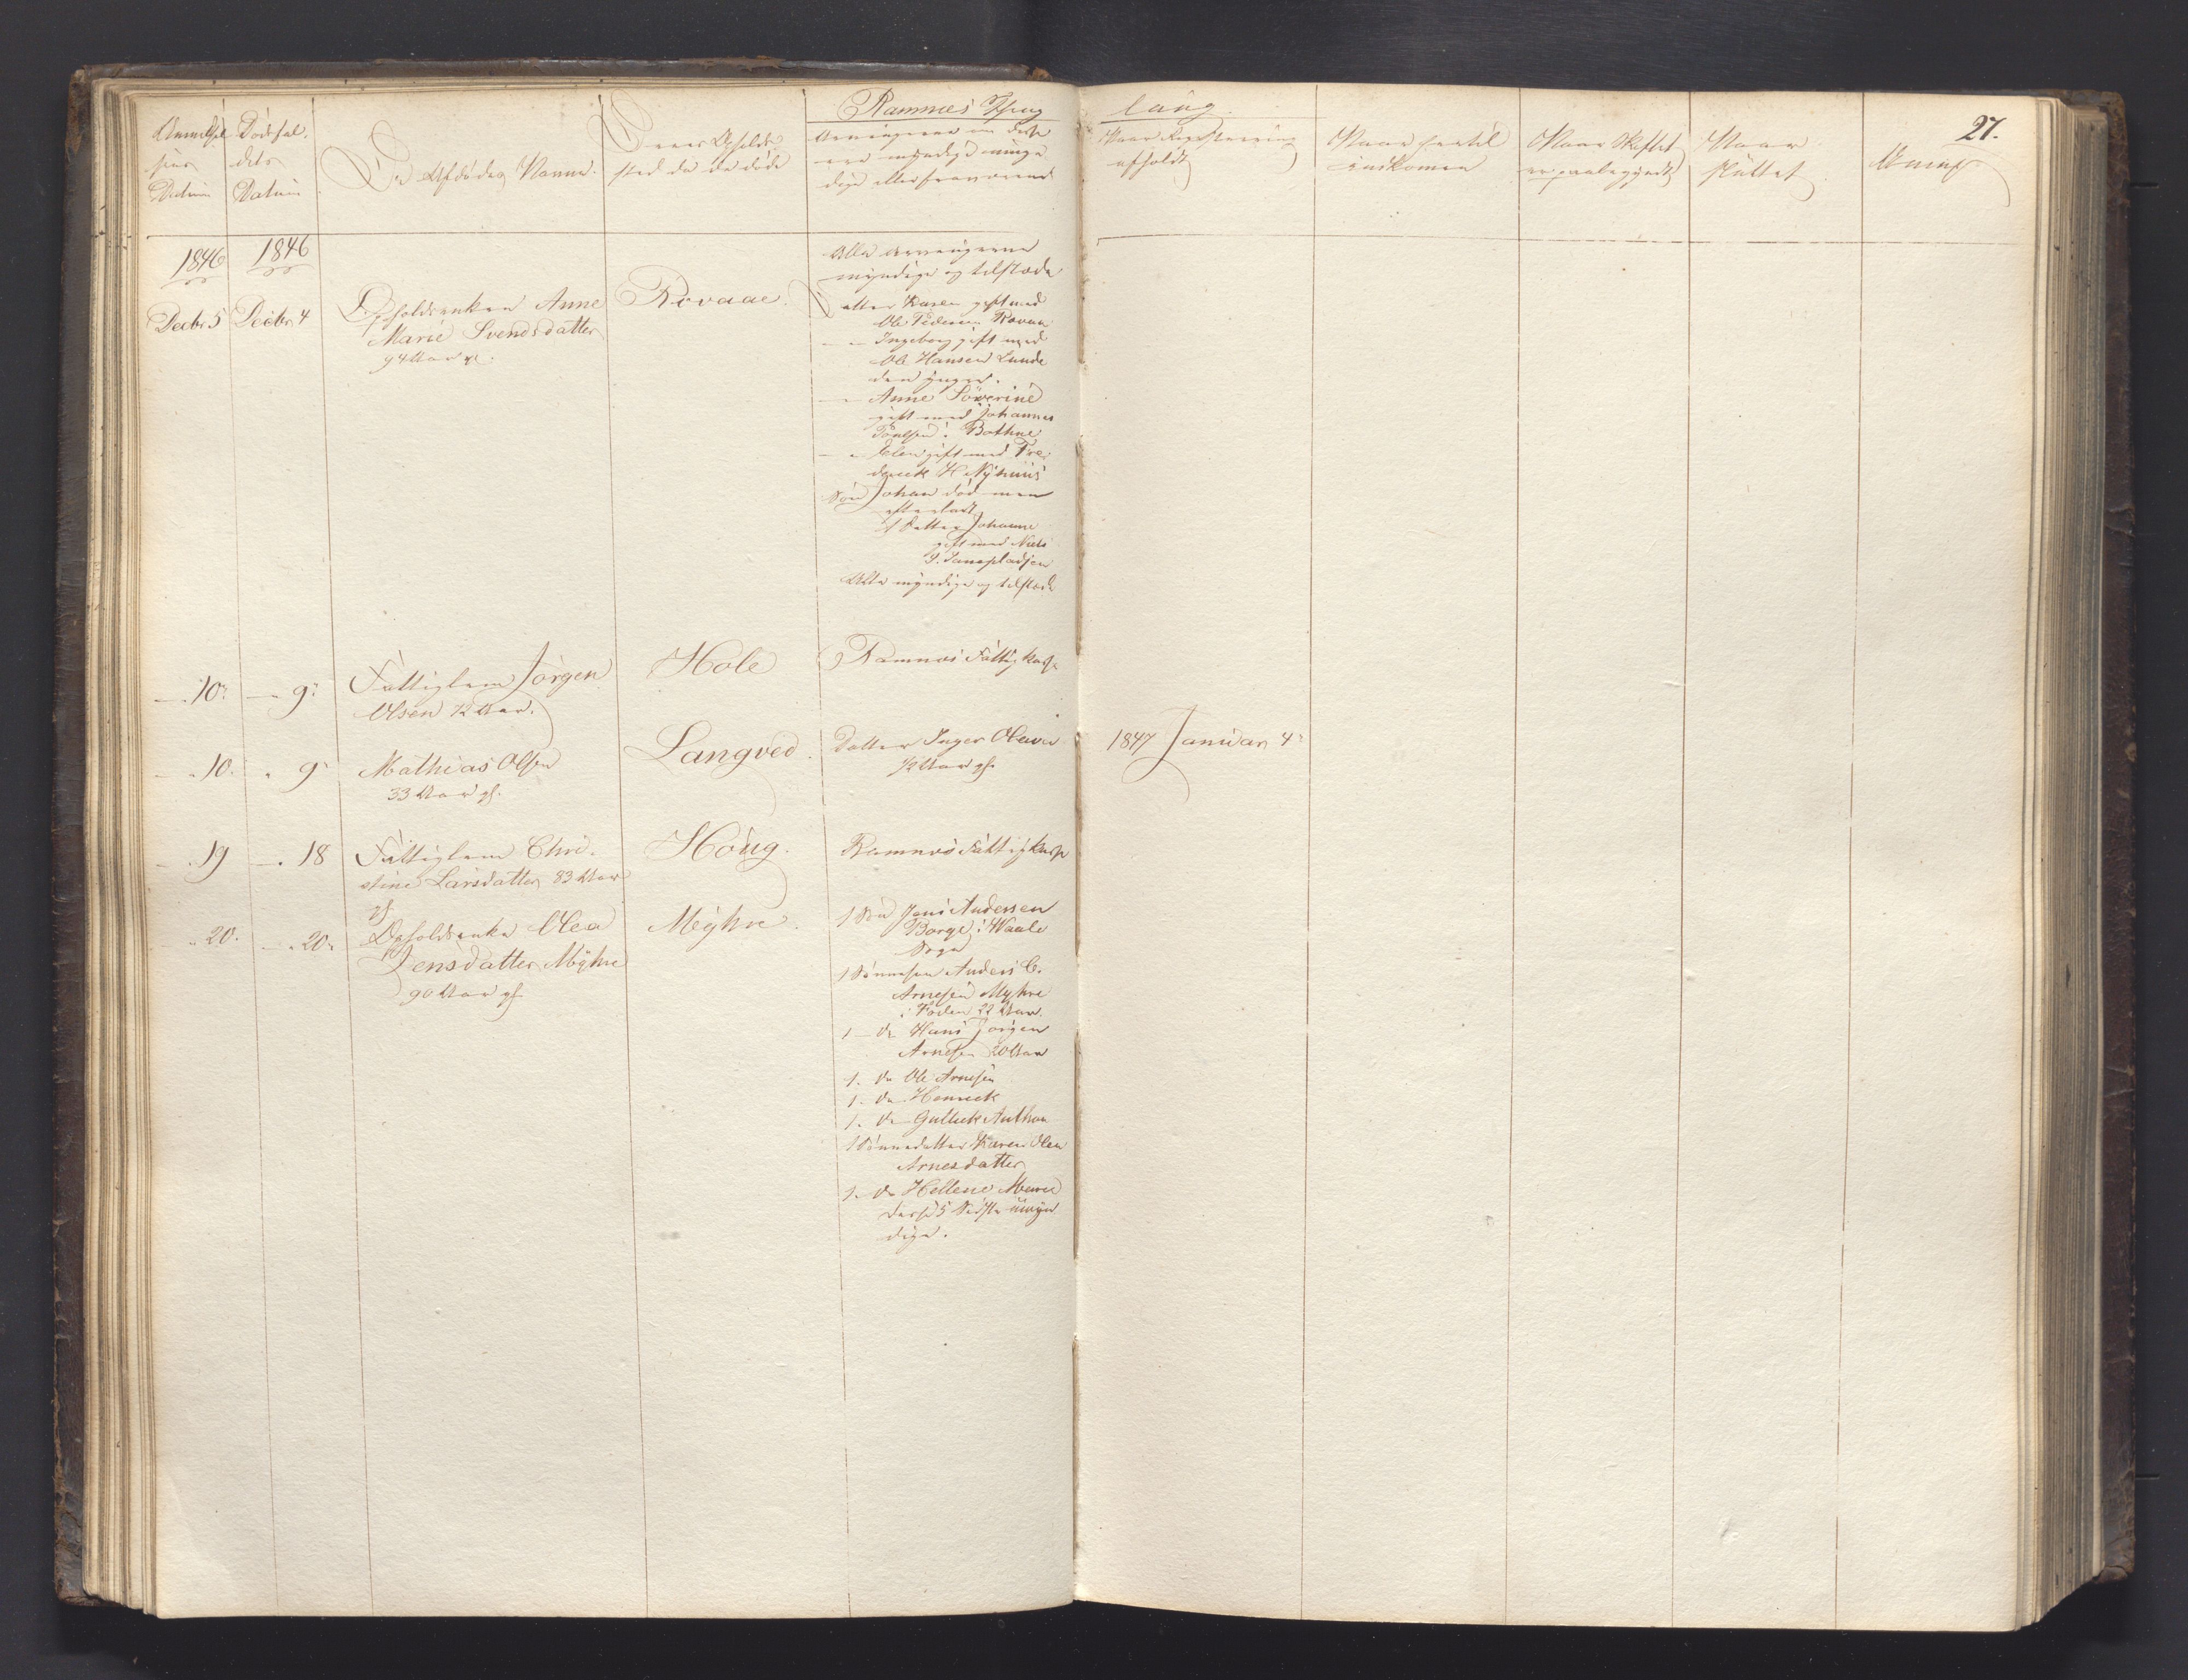 Ramnes Thing
laug.
27.
Anmeldel
sens
Datum
Dødsfal
dets
Datum
De Afdødes Navne.
Deres Opholds
sted da de døde
Arvingerne om disse
ere myndige umyn
dige eller fraværende
Naar Registrering
afholdt
Naar hertil
indkomen
Naar Skiftet
er paabegyndt
Naar
sluttet
Anmk
1846
1846
Decbr 5
Decbr. 4
Opholdsenken Anne
Marie Svendsdatter
94 Aar gl.
Rovaae.
Alle Arvingerne
myndige og tilstæde
Datter Karen gift med
Ole Pedersen Rovaae
— " — Ingeborg gift med
Ole Hansen Lunde
den yngre.
— " Anne Søverine
gift med Johannes
Poulsen i Bothne
— " Elen gift med Fre
derick H Nyhuus
Søn Johan død men
efterladt
1 Datter Johanne
gift med Niels
Alle myndige og tilstæde
— " 10.
— " 9.
Fattiglem Jørgen
Olsen 72 Aar.
Hole
Ramnes Fattigkasse
— " 10.
" 9
Mathias Olsen
33 Aar gl.
Langved.
Datter Inger Olava
1/2 Aar gl.
1847 Januar 4
— " 19
— " 18
Fattiglem Chri-
stine Larsdatter 83 Aar
gl
Houg.
Ramnes Fattigkasse
" 20.
— " 20.
Opholdsenke Olea
Jensdatter Myhre
90 Aar gl
Meyhre.
1 Søn Jens Andersen
Borge i Waale
Sogn
1 Sønnesøn Anders C.
Arnesen Myhre
22 Aar.
1 — do Hans Jørgen
Arnesen 20 Aar
1. do Ole Arnesen
1. do Henrick
1. do Gullick Anthon
1 Sønnedatter Karen Olea
Arnesdatter
1. do Hellene Marie
disse 5 sidste umyn
dige.